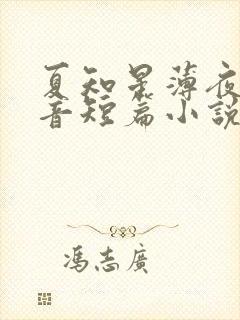 夏知星薄夜
音短篇小說
馮志廣